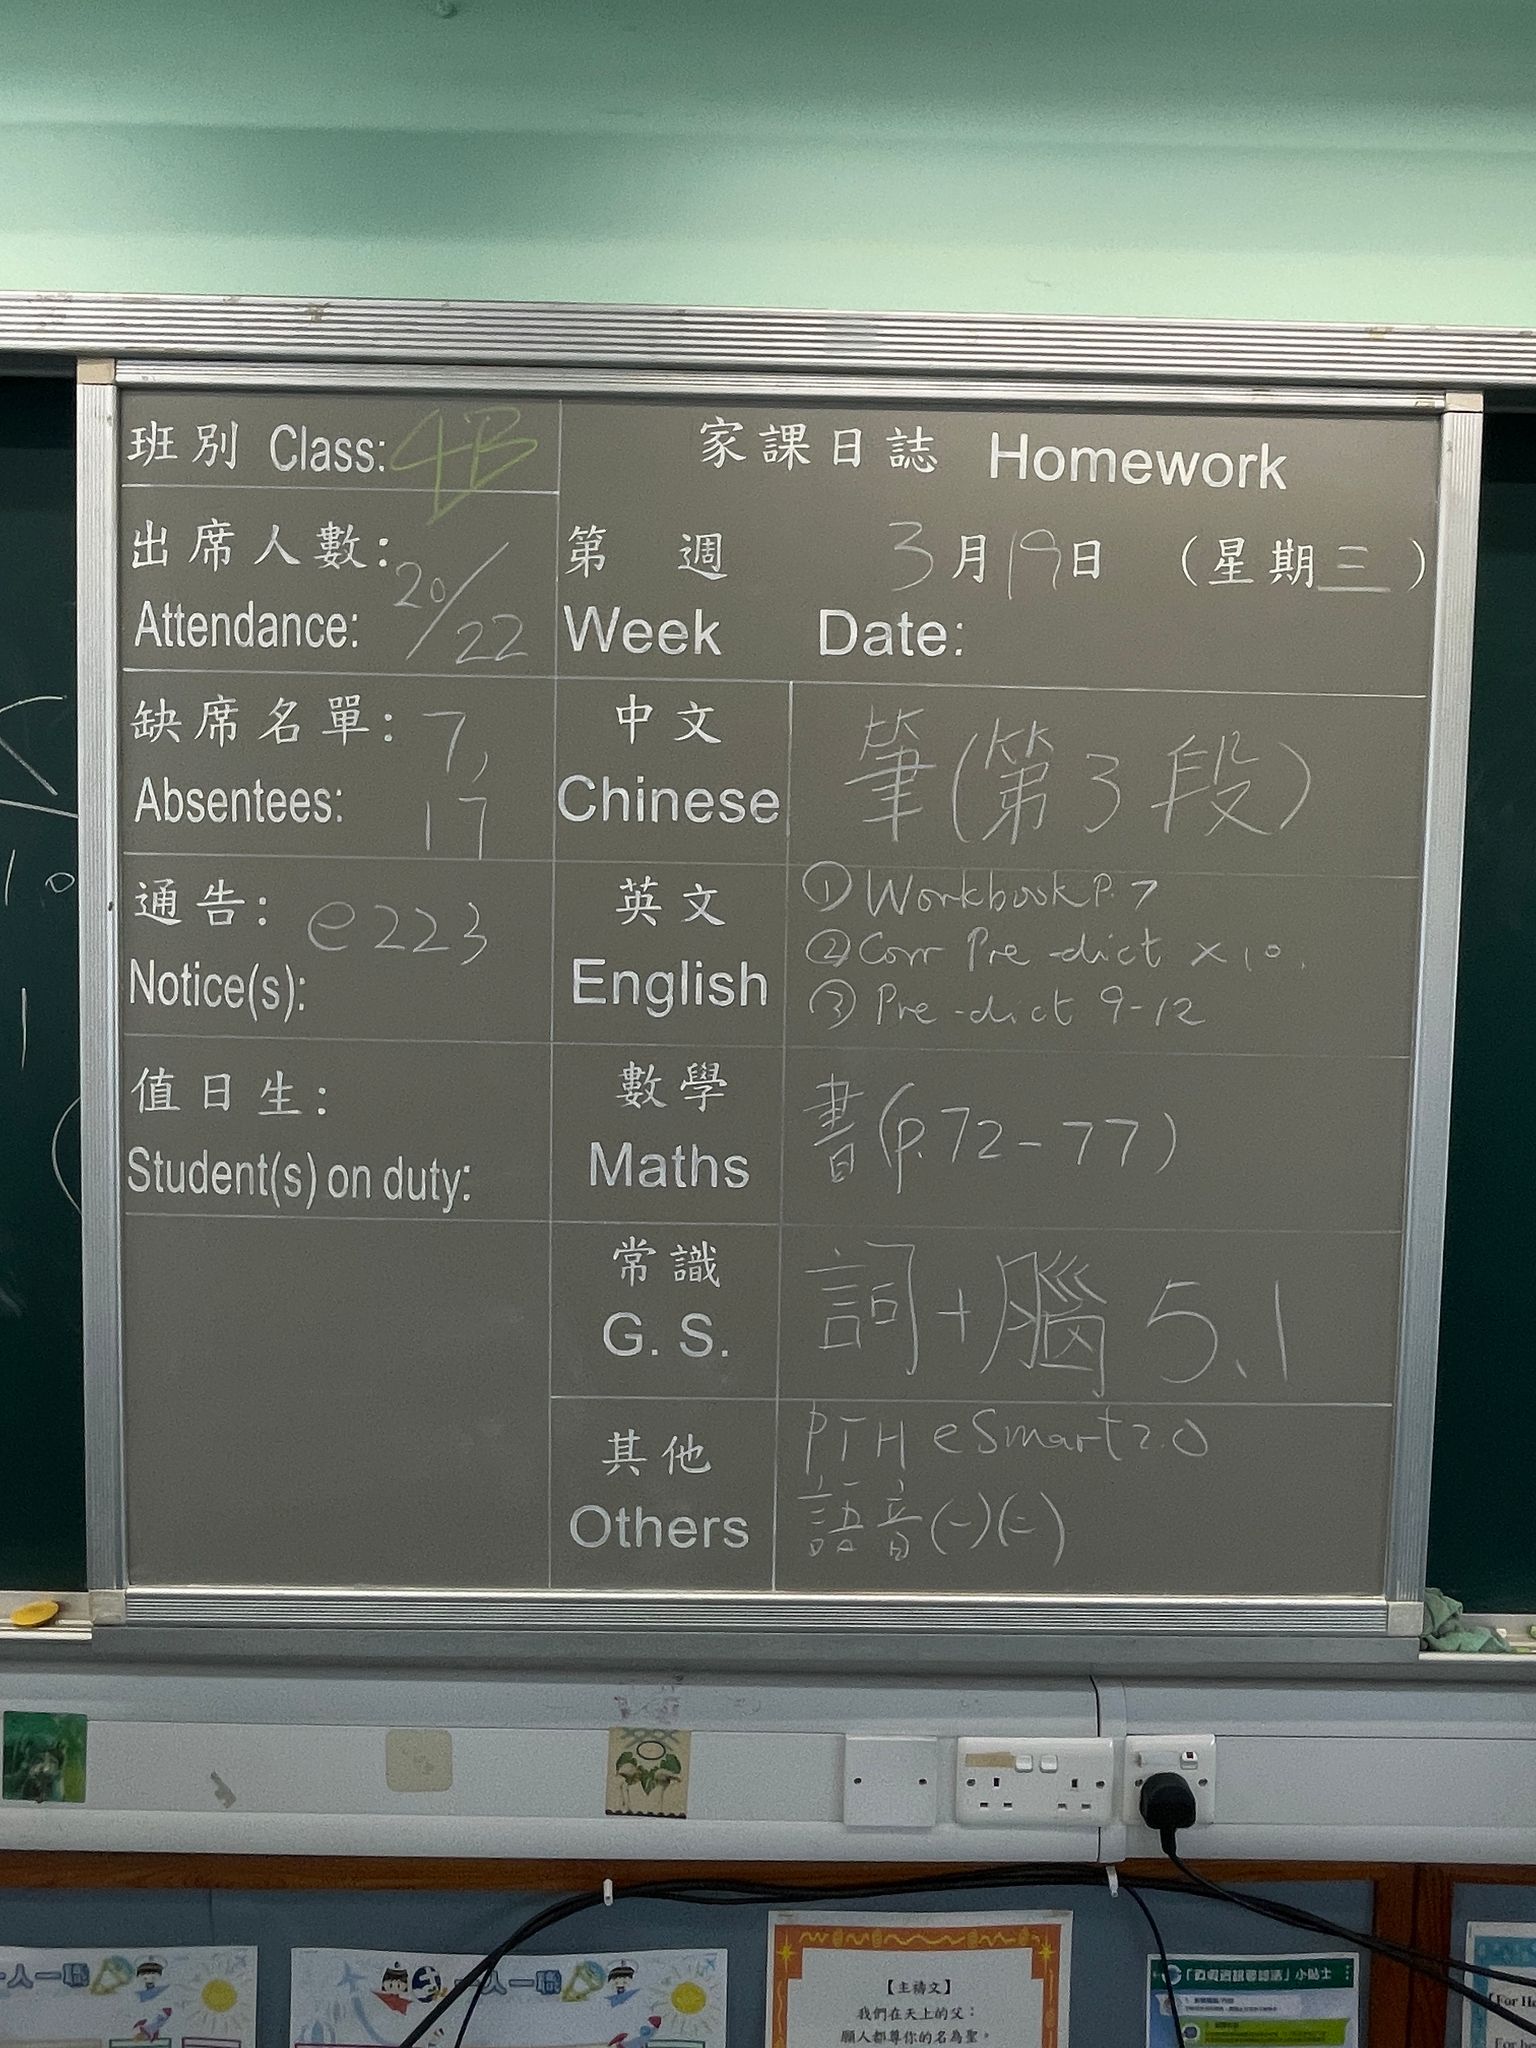 班別 Class: 4B
出席人數: 20/22
Attendance:
缺席名單: 7,
Absentees: 17
通告: e223
Notice(s):
值日生:
Student(s) on duty:
家課日誌 Homework
第 週 3月19日 (星期三)
Week Date:
中文 筆(第3段)
Chinese
英文 ① Workbook P.7
English ② Corr Pre-dict ×10.
③ Pre-dict 9-12
數學 書(p.72-77)
Maths
常識 詞+腦 5.1
G. S.
其他 PTH eSmart 2.0
Others 語音(一)(二)
一人一職
一人一職
【主禱文】
我們在天上的父:
願人都尊你的名為聖。
小貼士